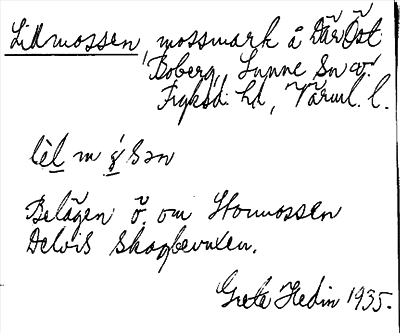 Lillmossen, mossmark å Där Öst
Boberg, Sunne sn o.
Fryksd. hd, Värml. l.
lèl m
Belägen ö. om Hormossen
Delvis skogbevuxen.
Greta Hedin 1935.